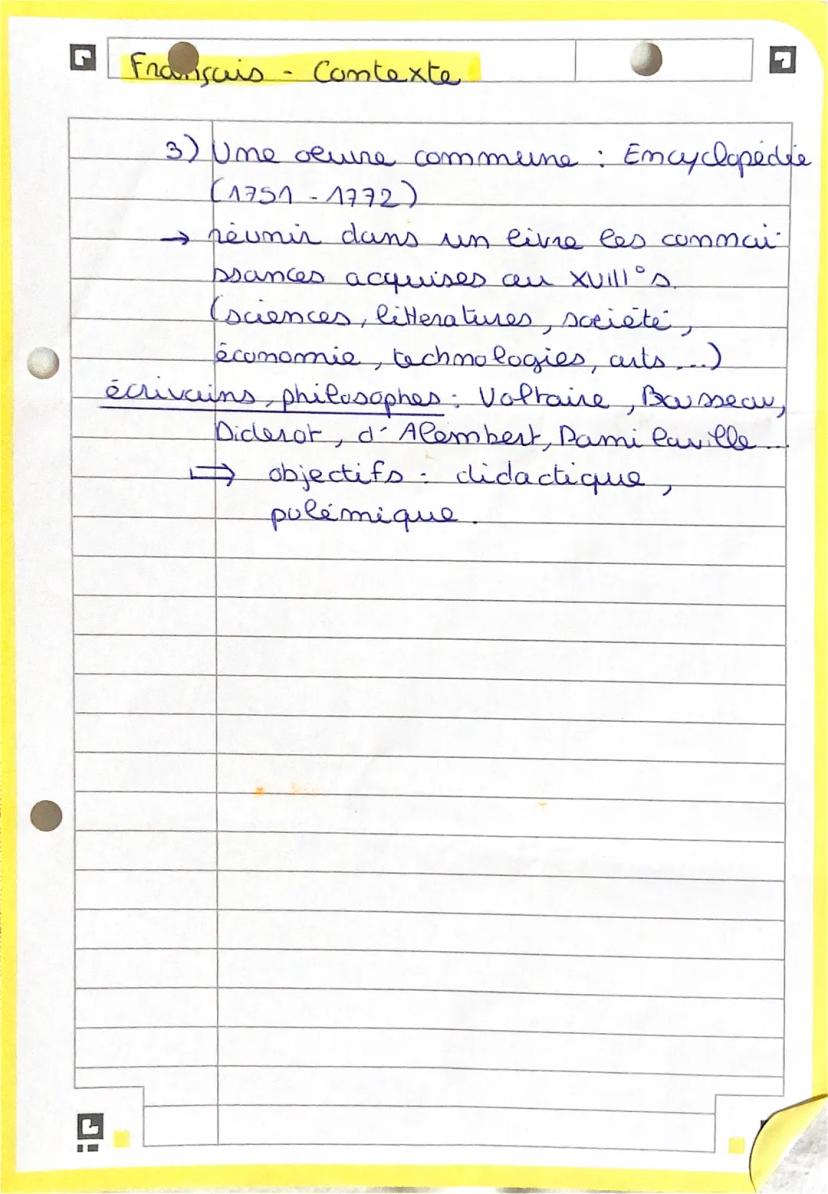 Français - Contexte
3) Une oeuvre commune : Encyclopédie
(1751 - 1772)
→ réunir dans un livre les connai-
ssances acquises au XVIII° s.
(sciences, litteratures, société,
économie, technologies, arts ...)
écrivains, philosophes : Voltaire, Rousseau,
Diderot, d'Alembert, Damilaville ...
⇒ objectifs : didactique,
polémique.